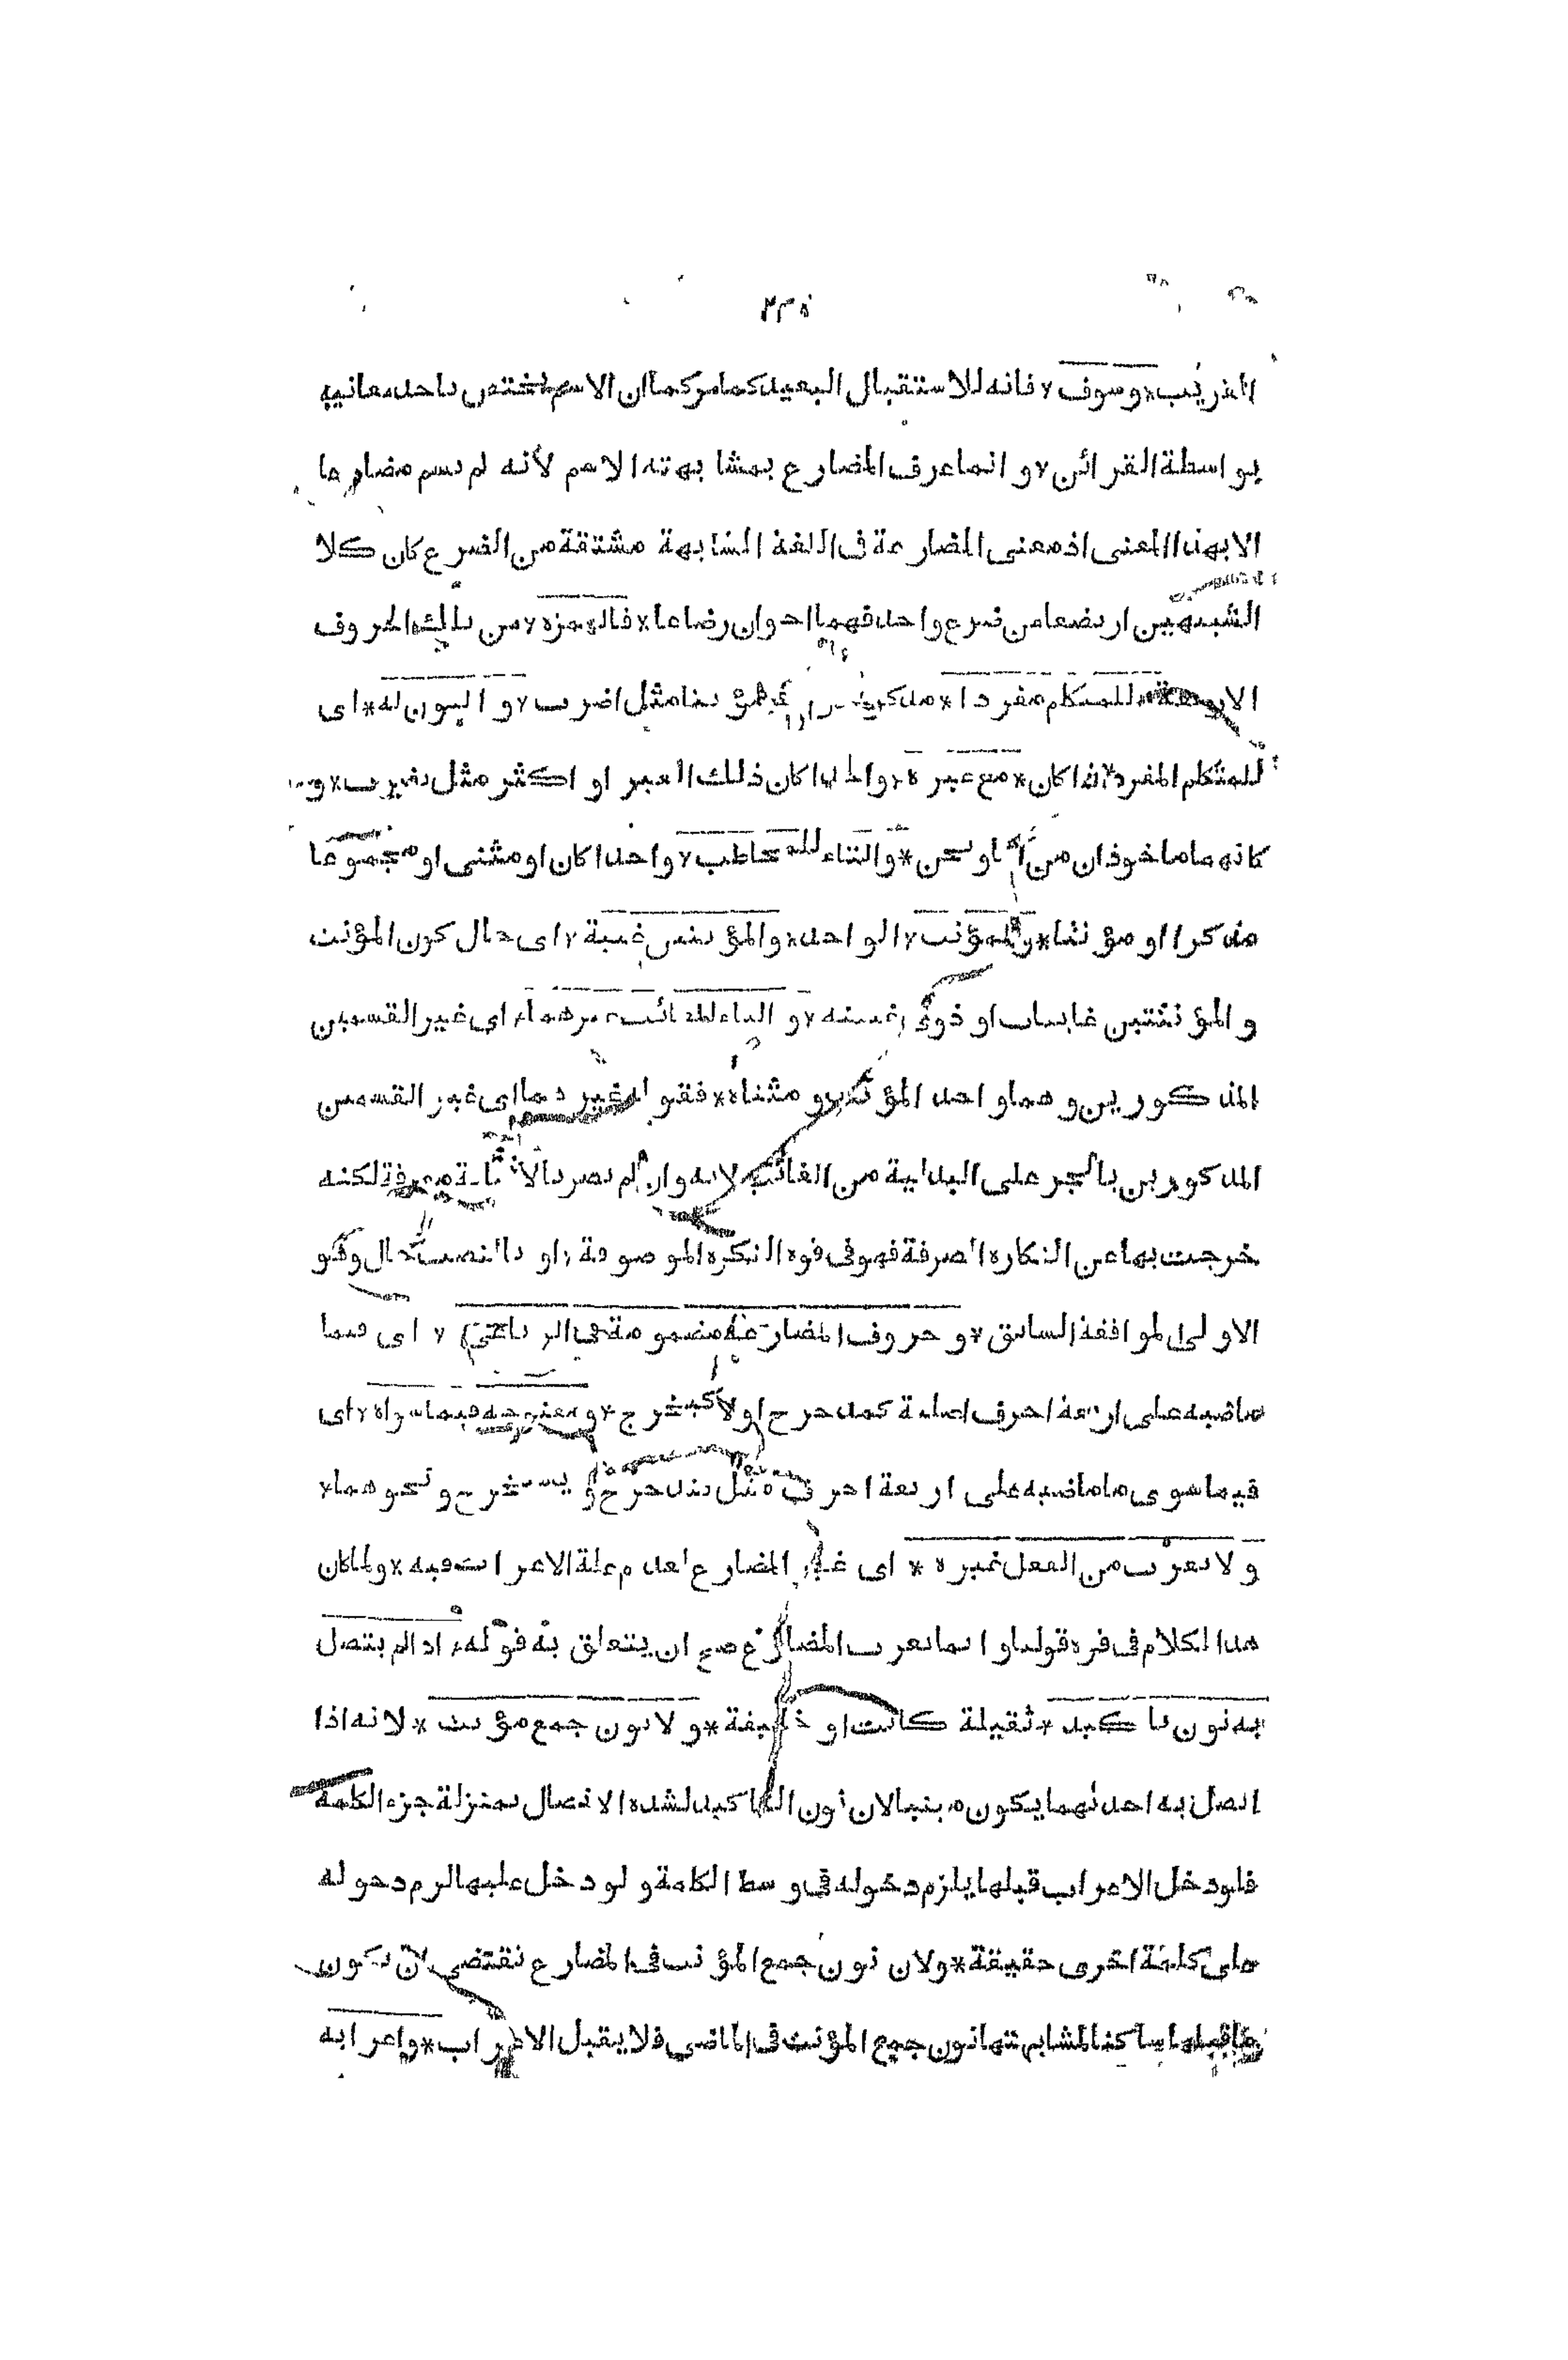 ٢٣٥
القريب * وسوف * فانه للاستقبال البعيد كما مر كما ان الاسم يختص باحد معانيه
بواسطة القرائن * و انما عرف المضارع بمشابهته الاسم لأنه لم يسم مضارعا
الا بهذا المعنى اذ معنى المضارعة فى اللغة المشابهة مشتقة من الضرع كان كلا
الشبيهين ارتضعا من ضرع واحد فهما اخوان رضاعا * فالهمزة * من تلك الحروف
الاربعة * للمتكلم مفردا * مذكرا او مؤنثا مثل اضرب * و النون له * اى
للمتكلم المفرد اذا كان * مع غيره * واحدا كان ذلك الغير او اكثر مثل نضرب *
كانهما ماخوذان من انا و نحن * و التاء للمخاطب * واحدا كان او مثنى او مجموعا
مذكرا او مؤنثا * و للمؤنث * الواحد * والمؤنثين غيبة * اى حال كون المؤنث
و المؤنثتين غايبات او ذوى غيبة * و الياء للغائب غيرهما * اى غير القسمين
المذكورين و هما واحد المؤنث و مثناه * فقوله غيرهما اى غير القسمين
المذكورين بالجر على البدلية من الغائب لانه وان لم يصر بالاضافة معرفة لكنه
خرجت بها عن النكارة الصرفة فهو فى قوة النكرة الموصوفة * او بالنصب حال وهو
الاولى لموافقة السابق * و حروف المضارعة مضمومة فى الرباعى * اى فيما
ماضيه على اربعة احرف اصلية كيدحرج او لا كيخرج * و مفتوحة فيما سواه * اى
فيما سوى ما ماضيه على اربعة احرف مثل يتدحرج و يستخرج و نحوهما *
و لا يعرب من الفعل غيره * اى غير المضارع لعدم علة الاعراب فيه * ولما كان
هذا الكلام فى قوة قولنا و انما يعرب المضارع صح ان يتعلق به قوله * اذا لم يتصل
به نون تاكيد * ثقيلة كانت او خفيفة * و لا نون جمع مؤنث * لانه اذا
اتصل به احدهما يكون مبنيا لان نون التاكيد لشدة الاتصال بمنزلة جزء الكلمة
فلو دخل الاعراب قبلها يلزم دخوله فى وسط الكلمة و لو دخل عليها لزم دخوله
على كلمة اخرى حقيقة * ولان نون جمع المؤنث فى المضارع تقتضى ان يكون
ما قبلها ساكنا لمشابهتها نون جمع المؤنث فى الماضى فلا يقبل الاعراب * و اعرابه